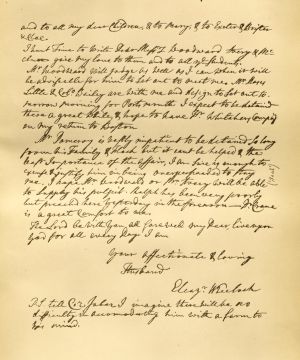 and to all my dear Children, & to Mary, & to Exeter & Boston
& Esqr.
I hant Time to Write. Dear Mr. Woodward
give my love to them and to all my Students.
Mr. Woodward will judge as well as I can when it will
be advisable for him to set out to meet me. Mr. Moses
Little & Col. Baily are with me and design to set out to
morrow morning for Portsmouth I expect to be detained
there a great while, & hope to have Mr. Whitaker's Compy.
on my return to Boston
Mr. is vastly impatient to be detained so long
from his Family & Flock but it cant be helped & the
vast Importance of the affair, I am sure is enough to
& justify him in being
me. I hope Mr. Woodward or Mr. will be able
to supply his pulpit. I have been very poorly
but preached here yesterday in the forenoon. Mr. Crane
is a great Comfort to me.
The Lord be with you all Farewell my Dear live upon
God for all every day I am
your affectionate & loving
Husband
Eleazr. Wheelock
P.S. tell Jabez I imagine there will be no
difficulty in accomodating him with a farm to
his mind.